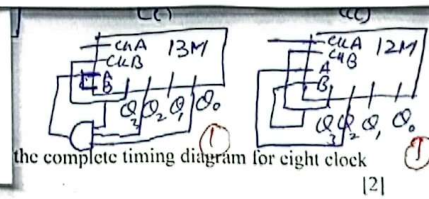 CLKA 13M
CLKB
A
B
Q3 Q2 Q1 Q0
1
CLKA 12M
CLKB
A
B
Q3 Q2 Q1 Q0
1
the complete timing diagram for eight clock
[2]